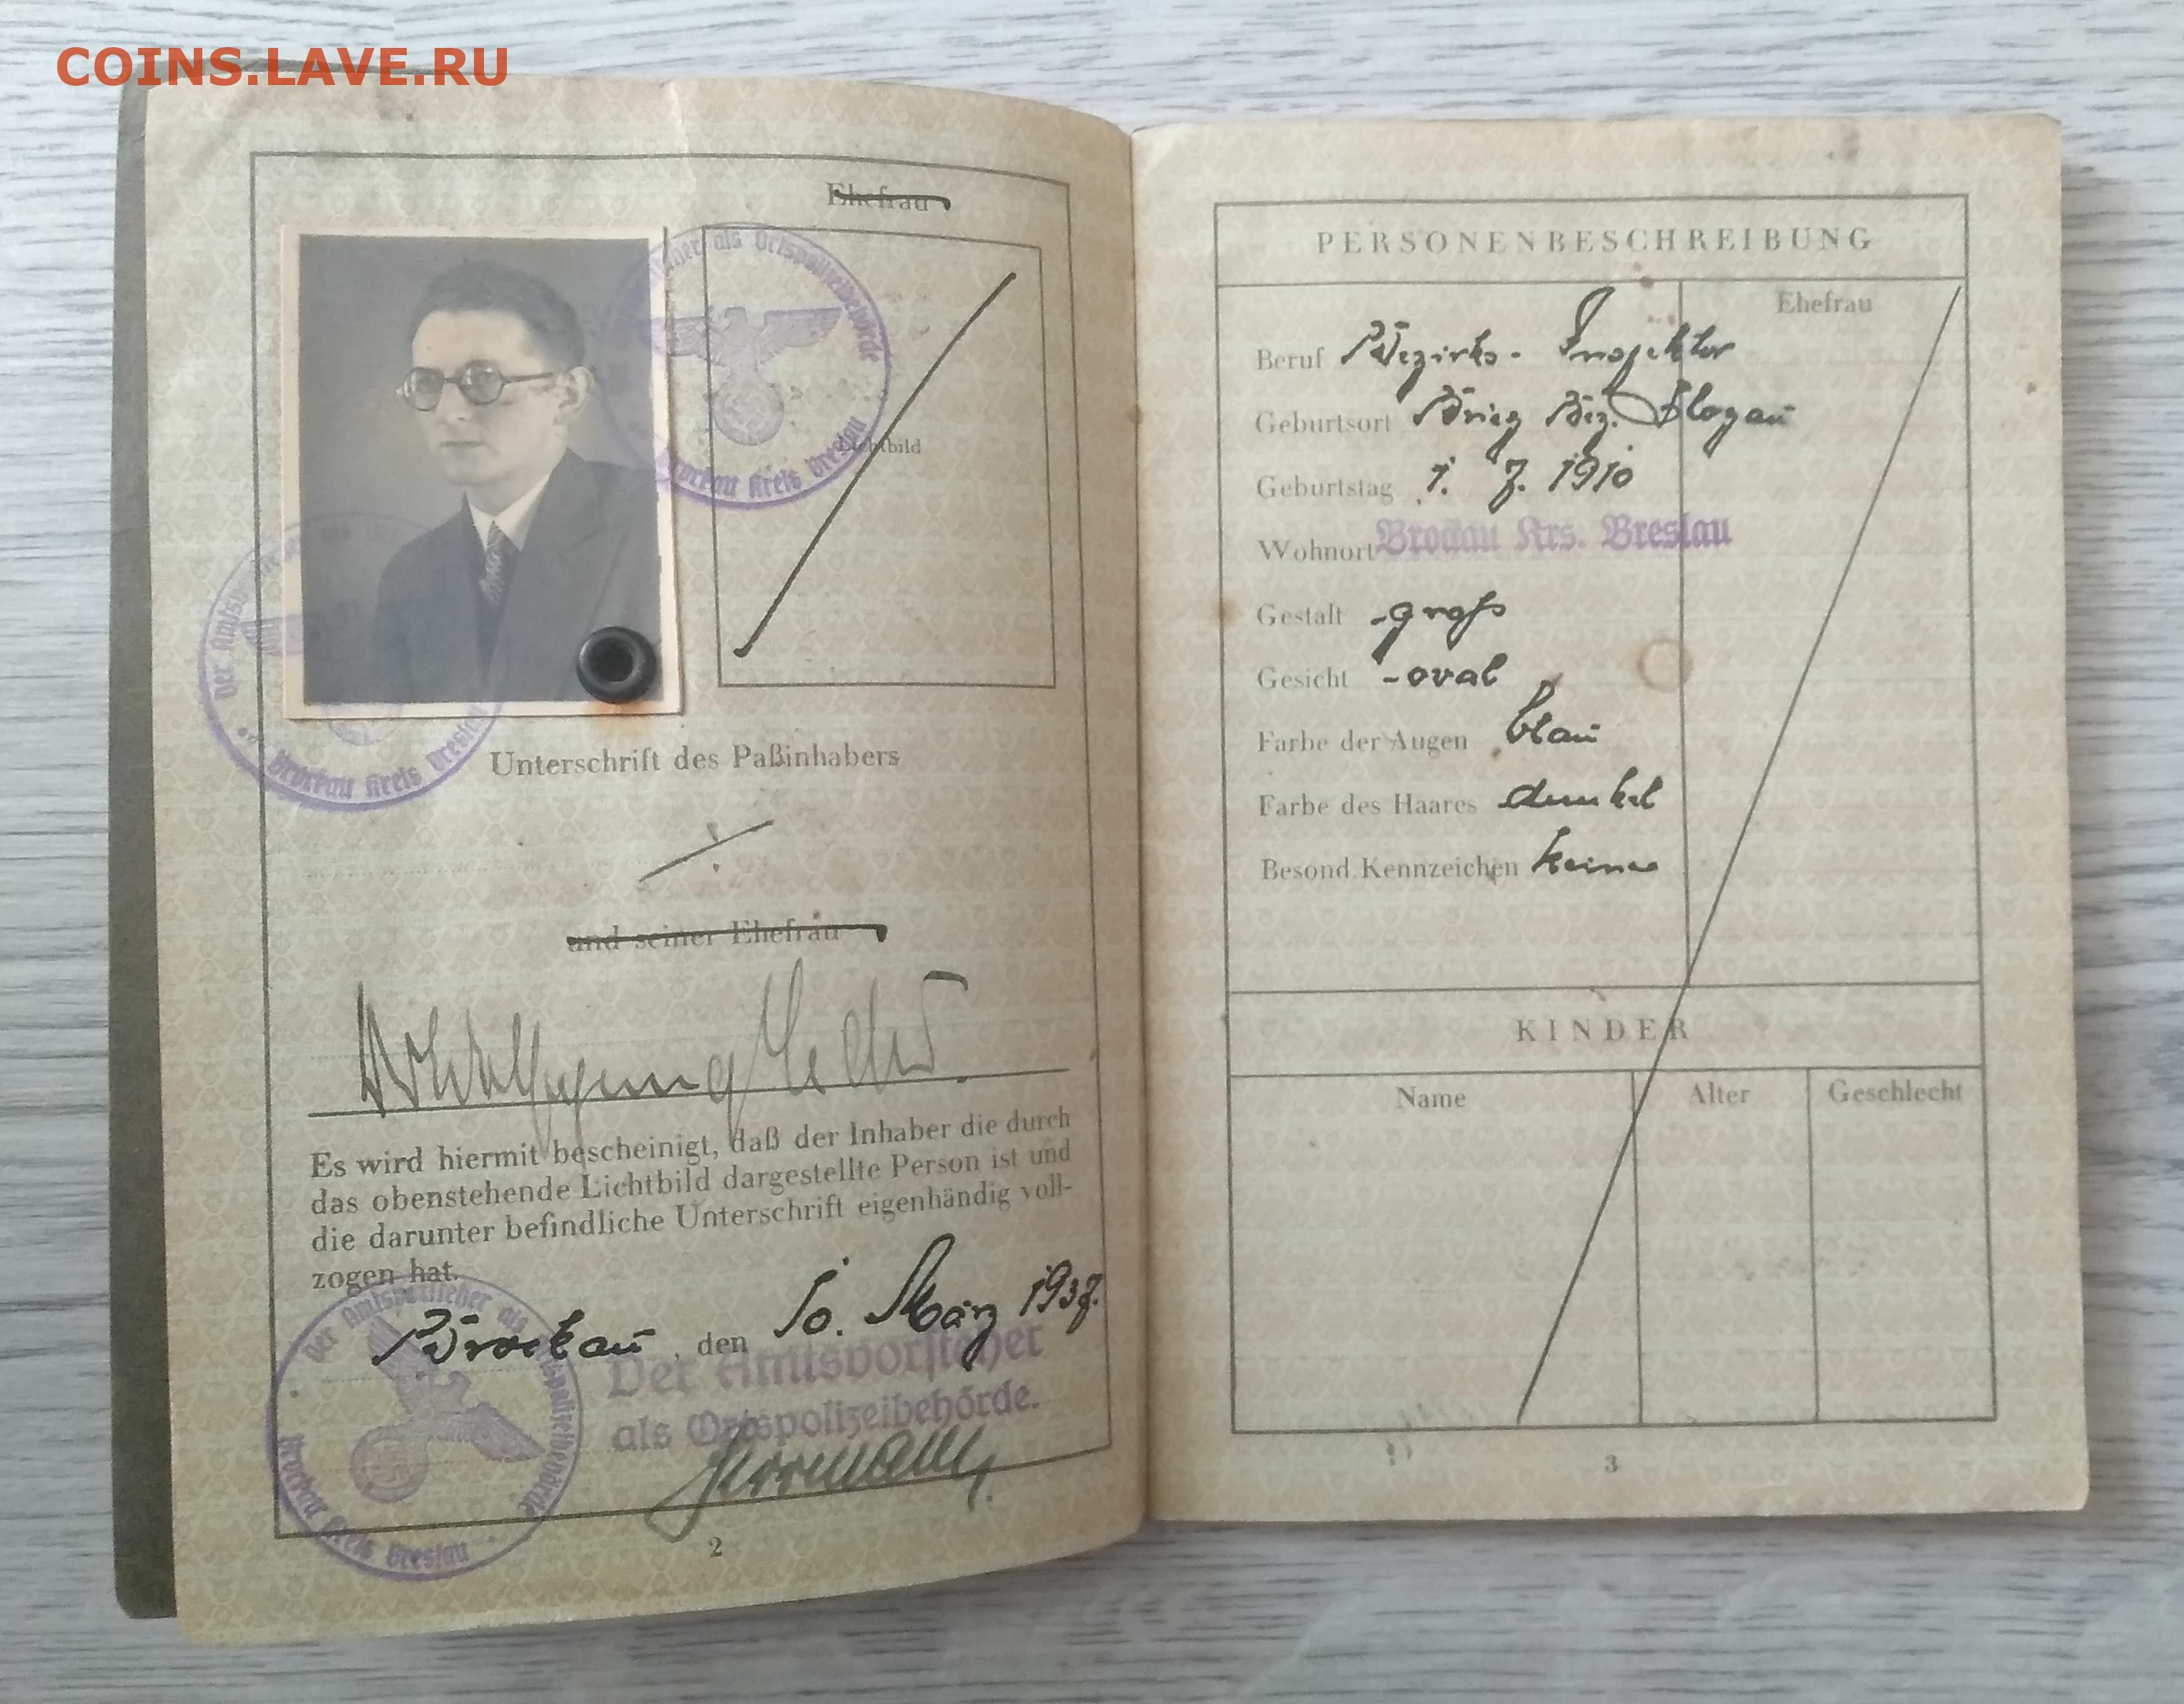 COINS.LAVE.RU
Ehefrau
Lichtbild
Der Amtsvorsteher als Ortspolizeibehörde
Brockau Kreis Breslau
Unterschrift des Paßinhabers
und seiner Ehefrau
Wolfgang
Es wird hiermit bescheinigt, daß der Inhaber die durch
das obenstehende Lichtbild dargestellte Person ist und
die darunter befindliche Unterschrift eigenhändig voll-
zogen hat.
Brockau, den 10. März 1937.
Der Amtsvorsteher
als Ortspolizeibehörde.
Herrmann
Der Amtsvorsteher als Ortspolizeibehörde
Brockau Kreis Breslau
2
PERSONENBESCHREIBUNG
Ehefrau
Beruf Bezirks-Inspektor
Geburtsort Brieg Bez. Glogau
Geburtstag 1. 7. 1910
Wohnort Brockau Krs. Breslau
Gestalt -groß
Gesicht -oval
Farbe der Augen blau
Farbe des Haares dunkel
Besond. Kennzeichen keine
KINDER
Name Alter Geschlecht
3